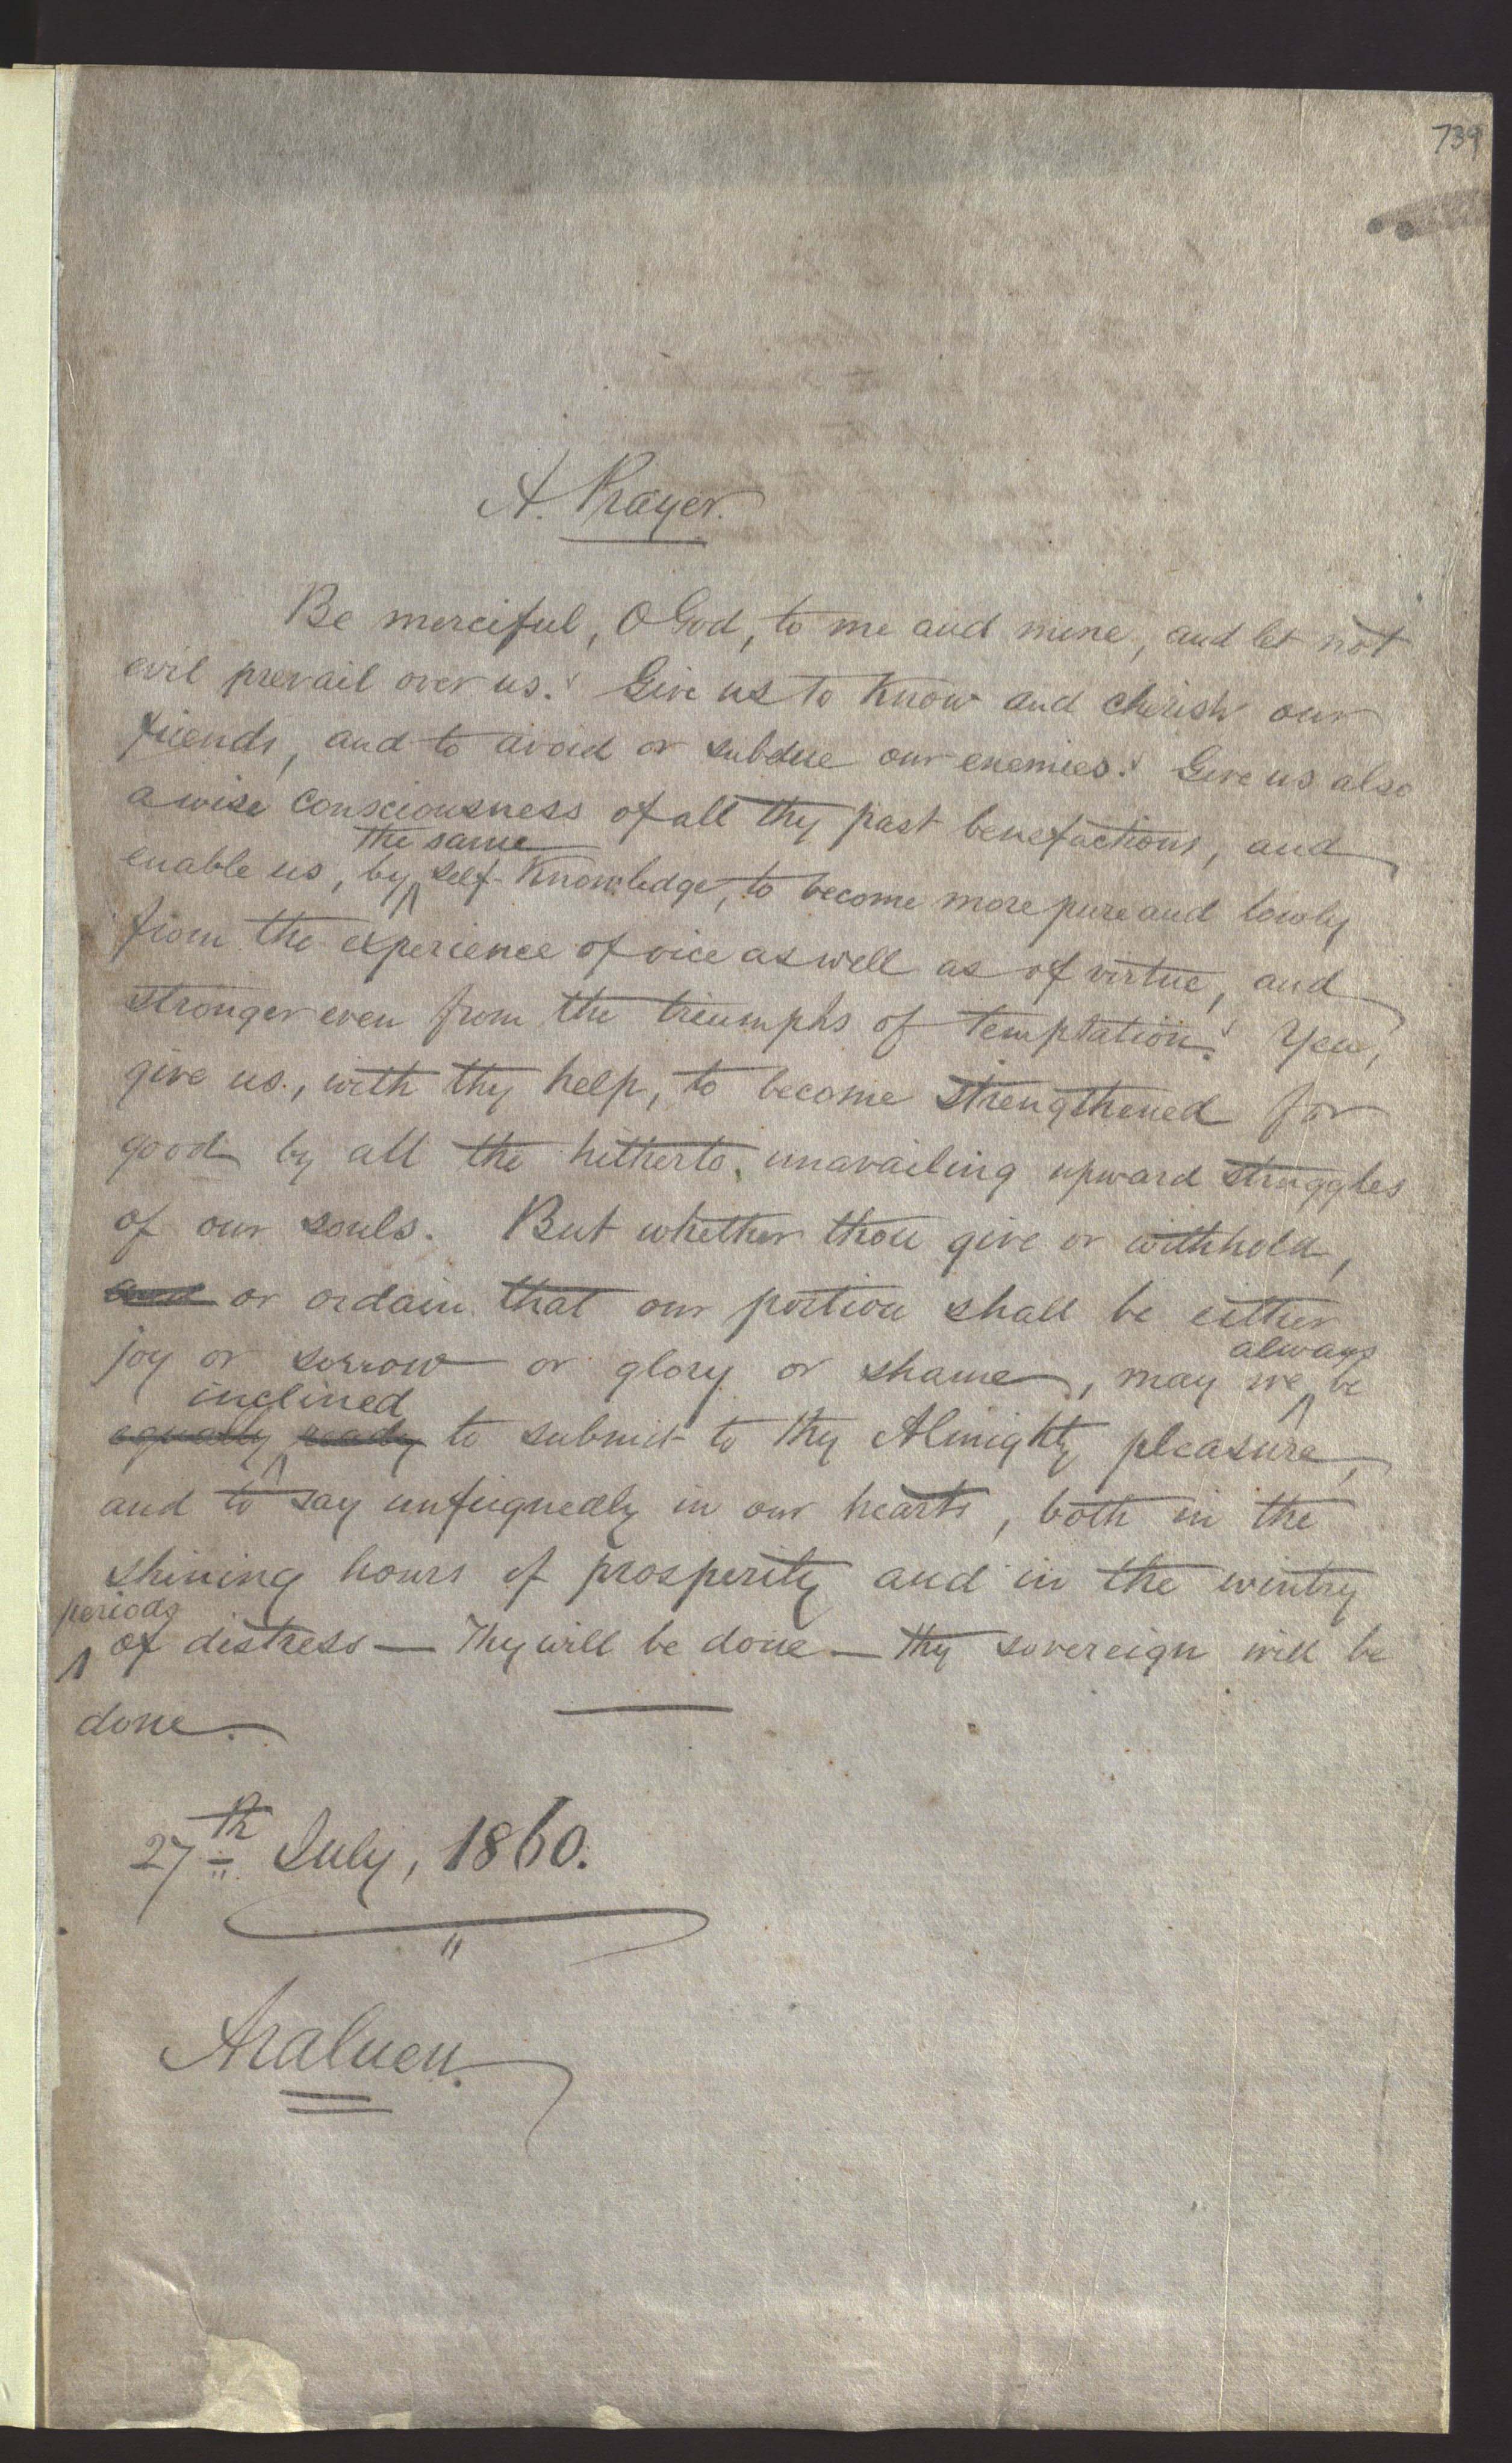 739
A. Prayer.
Be merciful, O God, to me and mine, and let not
evil prevail over us.! Give us to know and cherish our
friends, and to avoid or subdue our enemies.! Give us also
a wise consciousness of all thy past benefactions, and
the same
enable us, by self-knowledge, to become more pure and lowly
from the experience of vice as well as of virtue, and
stronger even from the triumphs of temptation.! Yea,
give us, with thy help, to become strengthened for
good by all the hitherto unavailing upward struggles
of our souls. But whether thou give or withhold,
and or ordain that our portion shall be either
always
joy or sorrow or glory or shame, may we be
inclined
equally ready to submit to thy Almighty pleasure,
and to say unfeignedly in our hearts, both in the
shining hours of prosperity and in the wintry
periods
of distress — Thy will be done — thy sovereign will be
done.
27th July, 1860.
Araluen.